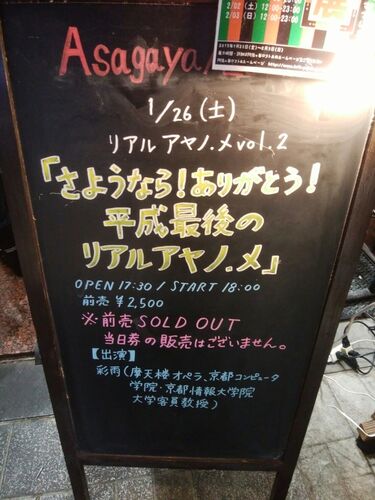 2/02(土)12:00-23:00
2/03(日)12:00-23:00
Asagaya
1/26(土)
リアルアヤノ.メvol.2
「さようなら!ありがとう!
平成最後の
リアルアヤノ.メ」
OPEN 17:30 / START 18:00
前売 ¥2,500
※前売SOLD OUT
当日券の販売はございません。
【出演】
彩雨(摩天楼オペラ、京都コンピュータ
学院・京都情報大学院
大学客員教授)